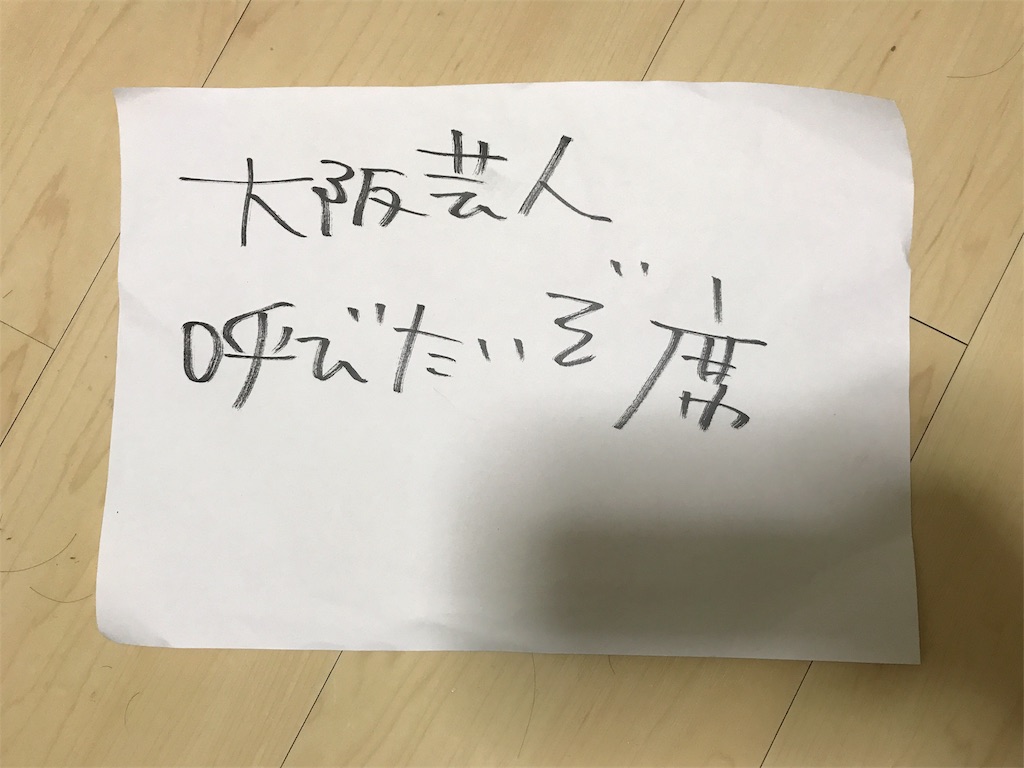 大阪芸人
呼びたいぞ席